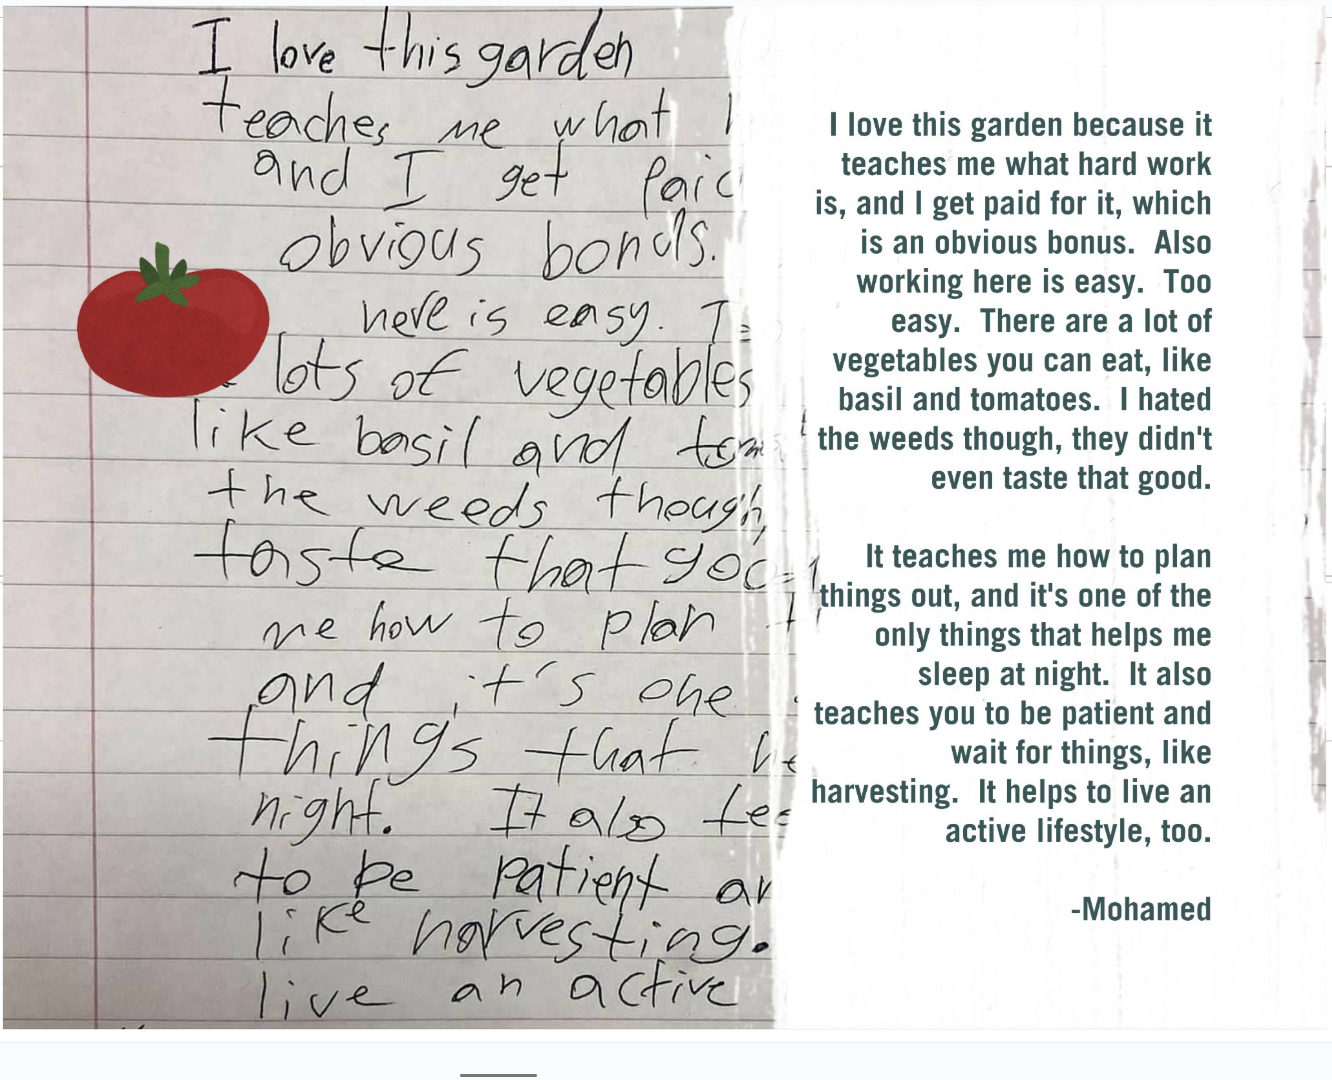 I love this garden
teaches me what
and I get Paid
obvious bonus.
here is easy.
lots of vegetables
like basil and
the weeds though,
taste that good
me how to plan
and it's one
things that
night. It also
to be patient
like harvesting.
live an active
I love this garden because it
teaches me what hard work
is, and I get paid for it, which
is an obvious bonus. Also
working here is easy. Too
easy. There are a lot of
vegetables you can eat, like
basil and tomatoes. I hated
the weeds though, they didn't
even taste that good.
It teaches me how to plan
things out, and it's one of the
only things that helps me
sleep at night. It also
teaches you to be patient and
wait for things, like
harvesting. It helps to live an
active lifestyle, too.
-Mohamed